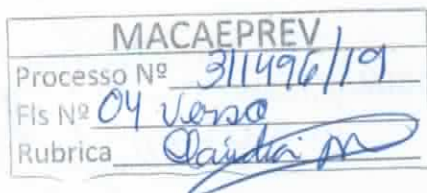 MACAEPREV
Processo Nº 311496/19
Fls Nº 04 verso
Rubrica Claudia M